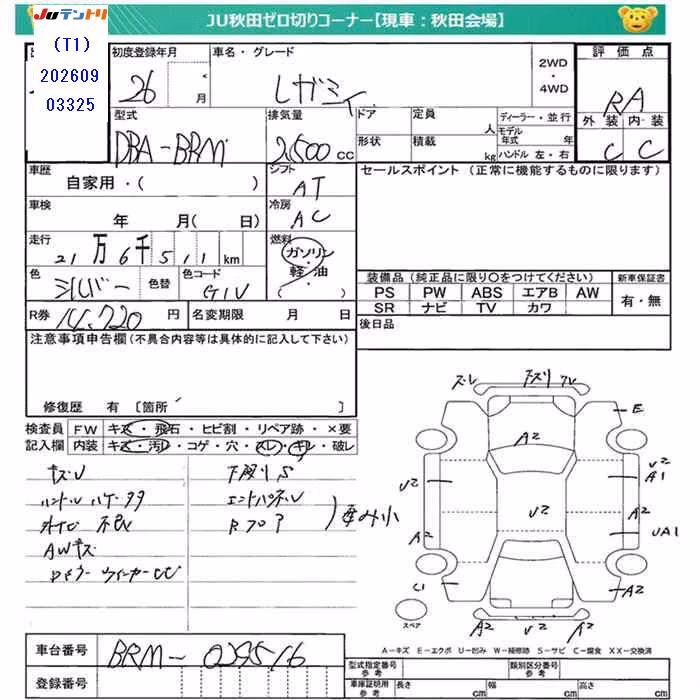 JUテントリ
JU秋田ゼロ切りコーナー【現車：秋田会場】
(T1)
202609
03325
初度登録年月
26
月
車名・グレード
レガシィ
2WD
・
4WD
評価点
RA
外装 内装
C C
型式
DBA-BRM
排気量
2500 cc
ドア
定員
人
ディーラー・並行
モデル年式
年
形状
積載
kg
ハンドル 左・右
車歴
自家用・( )
シフト
AT
セールスポイント (正常に機能するものに限ります)
車検
年 月( 日)
冷房
AC
走行
21万6千511km
燃料
ガソリン
軽・油
色
シルバー
色替
色コード
G1U
装備品 (純正品に限り○をつけてください)
新車保証書
PS PW ABS エアB AW
SR ナビ TV カワ
有・無
R券
14,720円
名変期限 月 日
後日品
注意事項申告欄(不具合内容等は具体的に記入して下さい)
修復歴 有 〔箇所 〕
検査員
記入欄
FW キズ・飛石・ヒビ割・リペア跡・×要
内装 キズ・汚れ・コゲ・穴・スレ・キレ・破レ
ズレ 下ズリ ズレ
E
A2
U2
A1
U2
U2
A2
A2
UA1
C1
A2
A2
A2
キズU
下廻りS
エンドパネル
AWキズ
歪み小
スペア
A－キズ E－エクボ U－凹み W－補修跡 S－サビ C－腐食 XX－交換済
車台番号
BRM-029516
登録番号
型式指定番号
参考
類別区分番号
参考
車庫証明用
参考
長さ cm
幅 cm
高さ cm